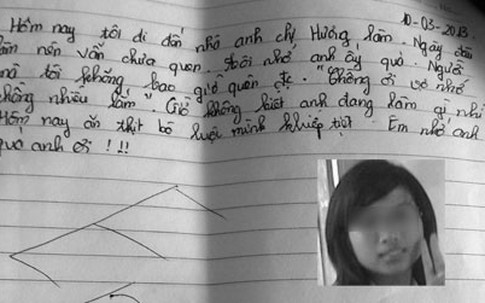 10-03-2013.
Hôm nay tôi đi đến nhà anh chị Hương làm. Ngày đầu
làm nên vẫn chưa quen. tôi nhớ anh ấy quá. Người
mà tôi không bao giờ quên đc. "Chồng ơi vợ nhớ
chồng nhiều lắm" Giờ không biết anh đang làm gì nhỉ
Hôm nay ăn thịt bò luộc mình khiếp tiệt. Em nhớ anh
quá anh ơi ! !!